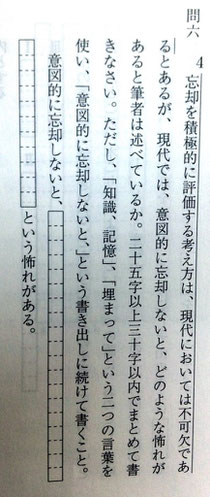 問六 4 忘却を積極的に評価する考え方は、現代においては不可欠であ
るとあるが、現代では、意図的に忘却しないと、どのような怖れが
あると筆者は述べているか。二十五字以上三十字以内でまとめて書
きなさい。ただし、「知識、記憶」、「埋まって」という二つの言葉を
使い、「意図的に忘却しないと、」という書き出しに続けて書くこと。
意図的に忘却しないと、
という怖れがある。